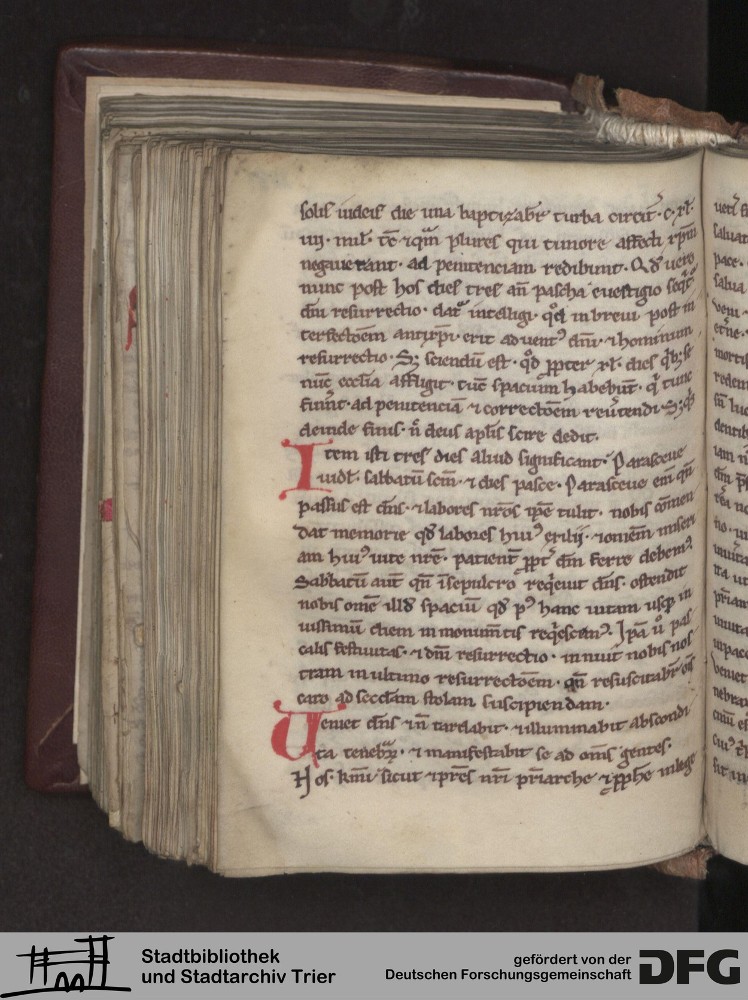 solis iudeis die una baptizabr̄ turba circit̾ · c · xl ·
iiii · mil̄ · tc̄ ⁊ qm̄ plures qui timore affecti xpm̄
negauerant · ad penitenciam redibunt · Qd̄ uero
nunc post hos dies tres an̄ pascha euestigio seqt̾
dn̄i resurrectio · dat̾ intelligi · qd̄ in breui post in
terfectōem antixp̄i · erit aduent᷒ dn̄i · ⁊ hominum
resurrectio · S; sciendū est · qd̄ ꝓpter xl · dies qb; se
nūc ecclīa affligit · tūc spacium habebūt · qi tunc
fuīnt · ad penitenciā ⁊ correctōem reu̾tendi · S; qs
deinde finis · n̄ deus aplīs scire dedit ·
Item isti tres dies aliud significant · Parasceue
uidl̄ · sabbatū scm̄ · ⁊ dies pasce · Parasceue eni qn̄
passus est dn̄s · ⁊ labores nr̄os ip̄e tulit · nobis cōmen
dat memorie qd̄ labores hui᷒ exilij · ⁊ om̄em miseri
am hui᷒ uite nr̄e · patient̾ ꝓpt̾ dm̄ ferre debem᷒ ·
Sabbatū aut̄ qn̄ ī sepulcro req̾euit dn̄s · ostendit
nobis om̄e illd̄ spaciū qd̄ p᷒ hanc uitam usq; in
uissimū diem in monumītis req̾escim᷒ · Ipā u̾ pas
calis festiuitas · ⁊ dn̄i resurrectio · innuit nobis nos
tram in ultimo resurrectōem · qn̄ resuscitabr̄ om̄s
caro ad sec̄dam stolam suscipiendam ·
Ueniet dn̄s ⁊ n̄ tardabit · ⁊ illuminabit abscondi
ta tenebrꝝ · ⁊ manifestabit se ad om̄s gentes ·
Hos · km̄i sicut ⁊ pr̄es nr̄i pr̄iarche ⁊ ꝓphe in lege
Stadtbibliothek
und Stadtarchiv Trier
gefördert von der
Deutschen Forschungsgemeinschaft
DFG